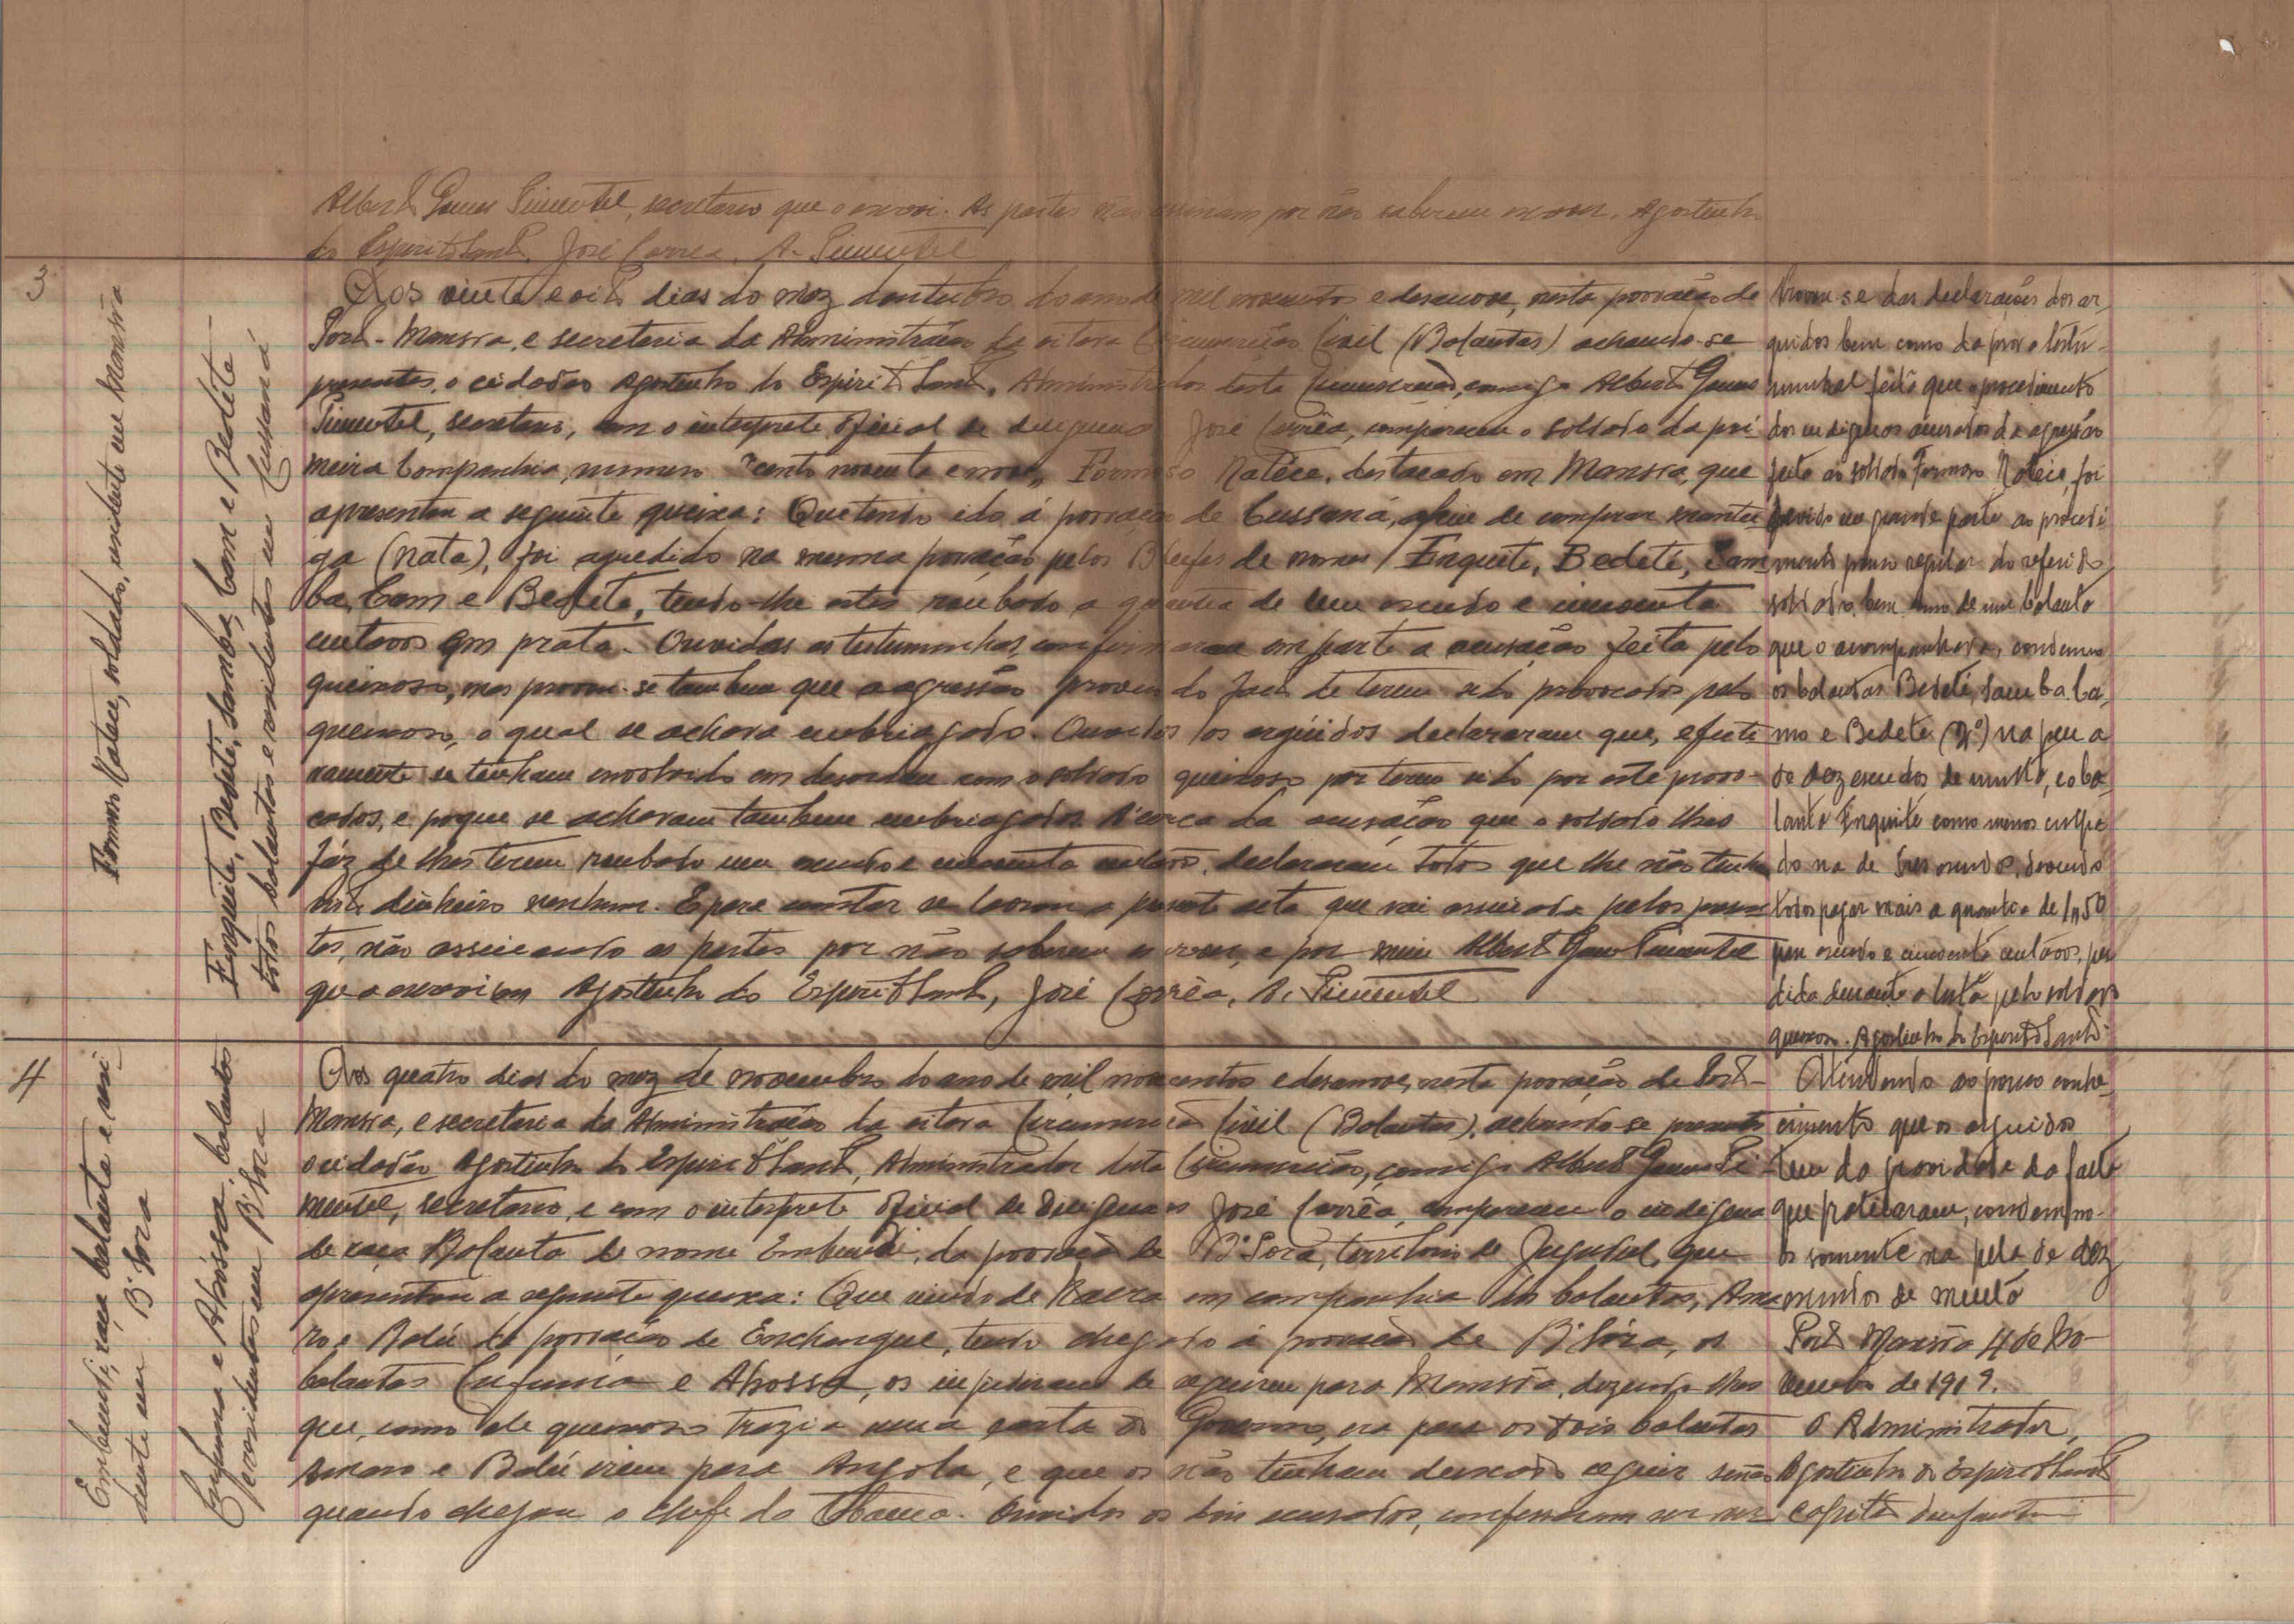 Alberto Gomes Pimentel, secretario que o escrevi. As partes não assinam por não saberem escrever. Agostinho
do Espirito Santo. José Corrêa. A. Pimentel
3
Formoso Natéce, soldado, residente em Mansôa
Enquite, Bedeté, Samba, Cam e Bedéte
todos balantas e residentes em Cussaná
Aos vinte e oito dias do mez doutubro do ano de mil novecentos e desanove, nesta povoação de
Porto-Mansoa, e secretaria da Administração da oitava Circunscrição Civil (Balantas) achando-se
presentes, o cidadão Agostinho do Espirito Santo, Administrador desta Circunscrição, comigo Alberto Gomes
Pimentel, secretario, com o interprete oficial de diligencias José Corrêa, compareceu o soldado da pri
meira Companhia, numero cento noventa e nove, Formoso Natéce, destacado em Mansoa, que
apresentou a seguinte queixa: Que tendo ido á povoação de Cussaná, afim de comprar mantei
ga (nata), foi agredido na mesma povoação pelos de nomes Enquite, Bedeté, Sam
ba, Cam e Bedéte, tendo-lhe estes roubado a quantia de um escudo e cincoenta
centavos em prata. Ouvidas as testemunhas, confirmaram em parte a acusação feita pelo
queixoso, mas provou-se tambem que a agressão proveiu do facto de terem sido provocados pelo
queixoso, o qual se achava embriagado. Ouvidos os argüidos declararam que, efecti
vamente se tinham envolvido em desordem com o soldado queixoso por terem sido por este provo-
cados, e porque se achavam tambem embriagados. Ácerca da acusação que o soldado lhes
fáz de lhes terem roubado um escudo e cincoenta centavos, declararam todos que lhe não tinham
visto dinheiro nenhum. E para constar se lavrou a presente acta que vai assinada pelos presen
tes, não assinando as partes por não saberem escrever, e por mim Alberto Gomes Pimentel
que a escrevi. Agostinho do Espirito Santo, José Corrêa, A. Pimentel
Prova-se das declarações dos ar
guidos bem como da prova testi-
munhal feita que o procedimento
dos indigenas acusados da agressão
feita ao soldado Formoso Natéce, foi
devido em grande parte ao procedi
mento pouco regular do referido
soldado, bem como de um balanta
que o acompanhava, condemno
os balantas Bedeté, Samba, Ca,
mo e Bedéte (2º) na pena
de dez escudos de multa, e o ba
lanta Enquite como menos culpa
do na de tres escudos, devendo
todos pagar mais a quantia de 1$50
um escudo e cincoenta centavos, per
dida durante a luta pelo soldado
queixoso. Agostinho do Espirito Santo.
4
Embundi, raça balanta e resi
dente em B'Sora
Cufuma e Abóssa, balantas
e residentes em B'Sora
Aos quatro dias do mez de novembro do ano de mil novecentos e desanove, nesta povoação de Porto-
Mansoa, e secretaria da Administração da oitava Circunscrição Civil (Balantas), achando-se presente
o cidadão Agostinho do Espirito Santo, Administrador desta Circunscrição, comigo Alberto Gomes Pi-
mentel, secretario, e com o interprete oficial de diligencias José Corrêa, compareceu o indigena
de raça Balanta de nome Embundi, da povoação de B'Sora, territorio de Jugudul, que
apresentou a seguinte queixa: Que vindo de em companhia dos balantas, Ama
ro e Balé da povoação de Enchangue, tendo chegado á povoação de B'Sóra, os
balantas Cufuma e Abossa, os impediram de seguirem para Mansôa, dizendo-lhes
que, como ele queixoso trazia uma carta do Governo, era para os dois balantas
Amaro e Balé irem para Angola, e que os não tinham deixado seguir senão
quando chegou o chefe da . Ouvidos os dois acusados, confessaram ser ver
Atendendo ao pouco conhe
cimento que os arguidos
tem da gravidade do facto
que praticaram, condemno-
os somente na pena de dez
escudos de multa
Porto Mansôa 4 de No-
vembro de 1919.
O Administrador,
Agostinho do Espirito Santo